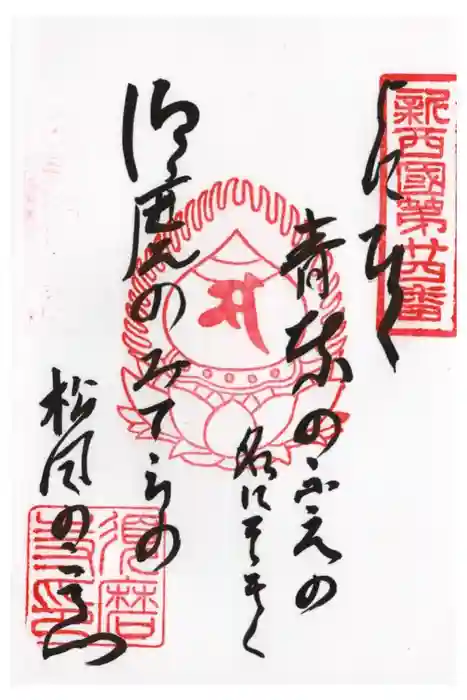 新西國第廿四番
よにひゞく
青葉のふえの
名に
須磨のみてらの
松風の
須磨
寺印